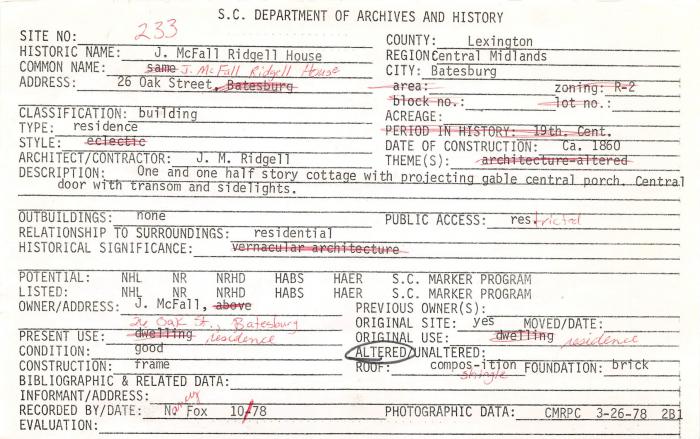 S.C. DEPARTMENT OF ARCHIVES AND HISTORY
SITE NO: 233
COUNTY: Lexington
HISTORIC NAME: J. McFall Ridgell House
REGION Central Midlands
COMMON NAME: same J. McFall Ridgell House
CITY: Batesburg
ADDRESS: 26 Oak Street, Batesburg
area: zoning: R-2
block no.: lot no.:
CLASSIFICATION: building
ACREAGE:
TYPE: residence
PERIOD IN HISTORY: 19th. Cent.
STYLE: eclectic
DATE OF CONSTRUCTION: Ca. 1860
ARCHITECT/CONTRACTOR: J. M. Ridgell
THEME(S): architecture-altered
DESCRIPTION: One and one half story cottage with projecting gable central porch. Central
door with transom and sidelights.
OUTBUILDINGS: none
PUBLIC ACCESS: restricted
RELATIONSHIP TO SURROUNDINGS: residential
HISTORICAL SIGNIFICANCE: vernacular architecture
POTENTIAL: NHL NR NRHD HABS HAER S.C. MARKER PROGRAM
LISTED: NHL NR NRHD HABS HAER S.C. MARKER PROGRAM
OWNER/ADDRESS: J. McFall, above
26 Oak St., Batesburg
PREVIOUS OWNER(S):
ORIGINAL SITE: yes MOVED/DATE:
PRESENT USE: dwelling residence
ORIGINAL USE: dwelling residence
CONDITION: good
ALTERED/UNALTERED:
CONSTRUCTION: frame
ROOF: compos-ition shingle FOUNDATION: brick
BIBLIOGRAPHIC & RELATED DATA:
INFORMANT/ADDRESS:
RECORDED BY/DATE: Nancy Fox 10/78
PHOTOGRAPHIC DATA: CMRPC 3-26-78 2B1
EVALUATION: